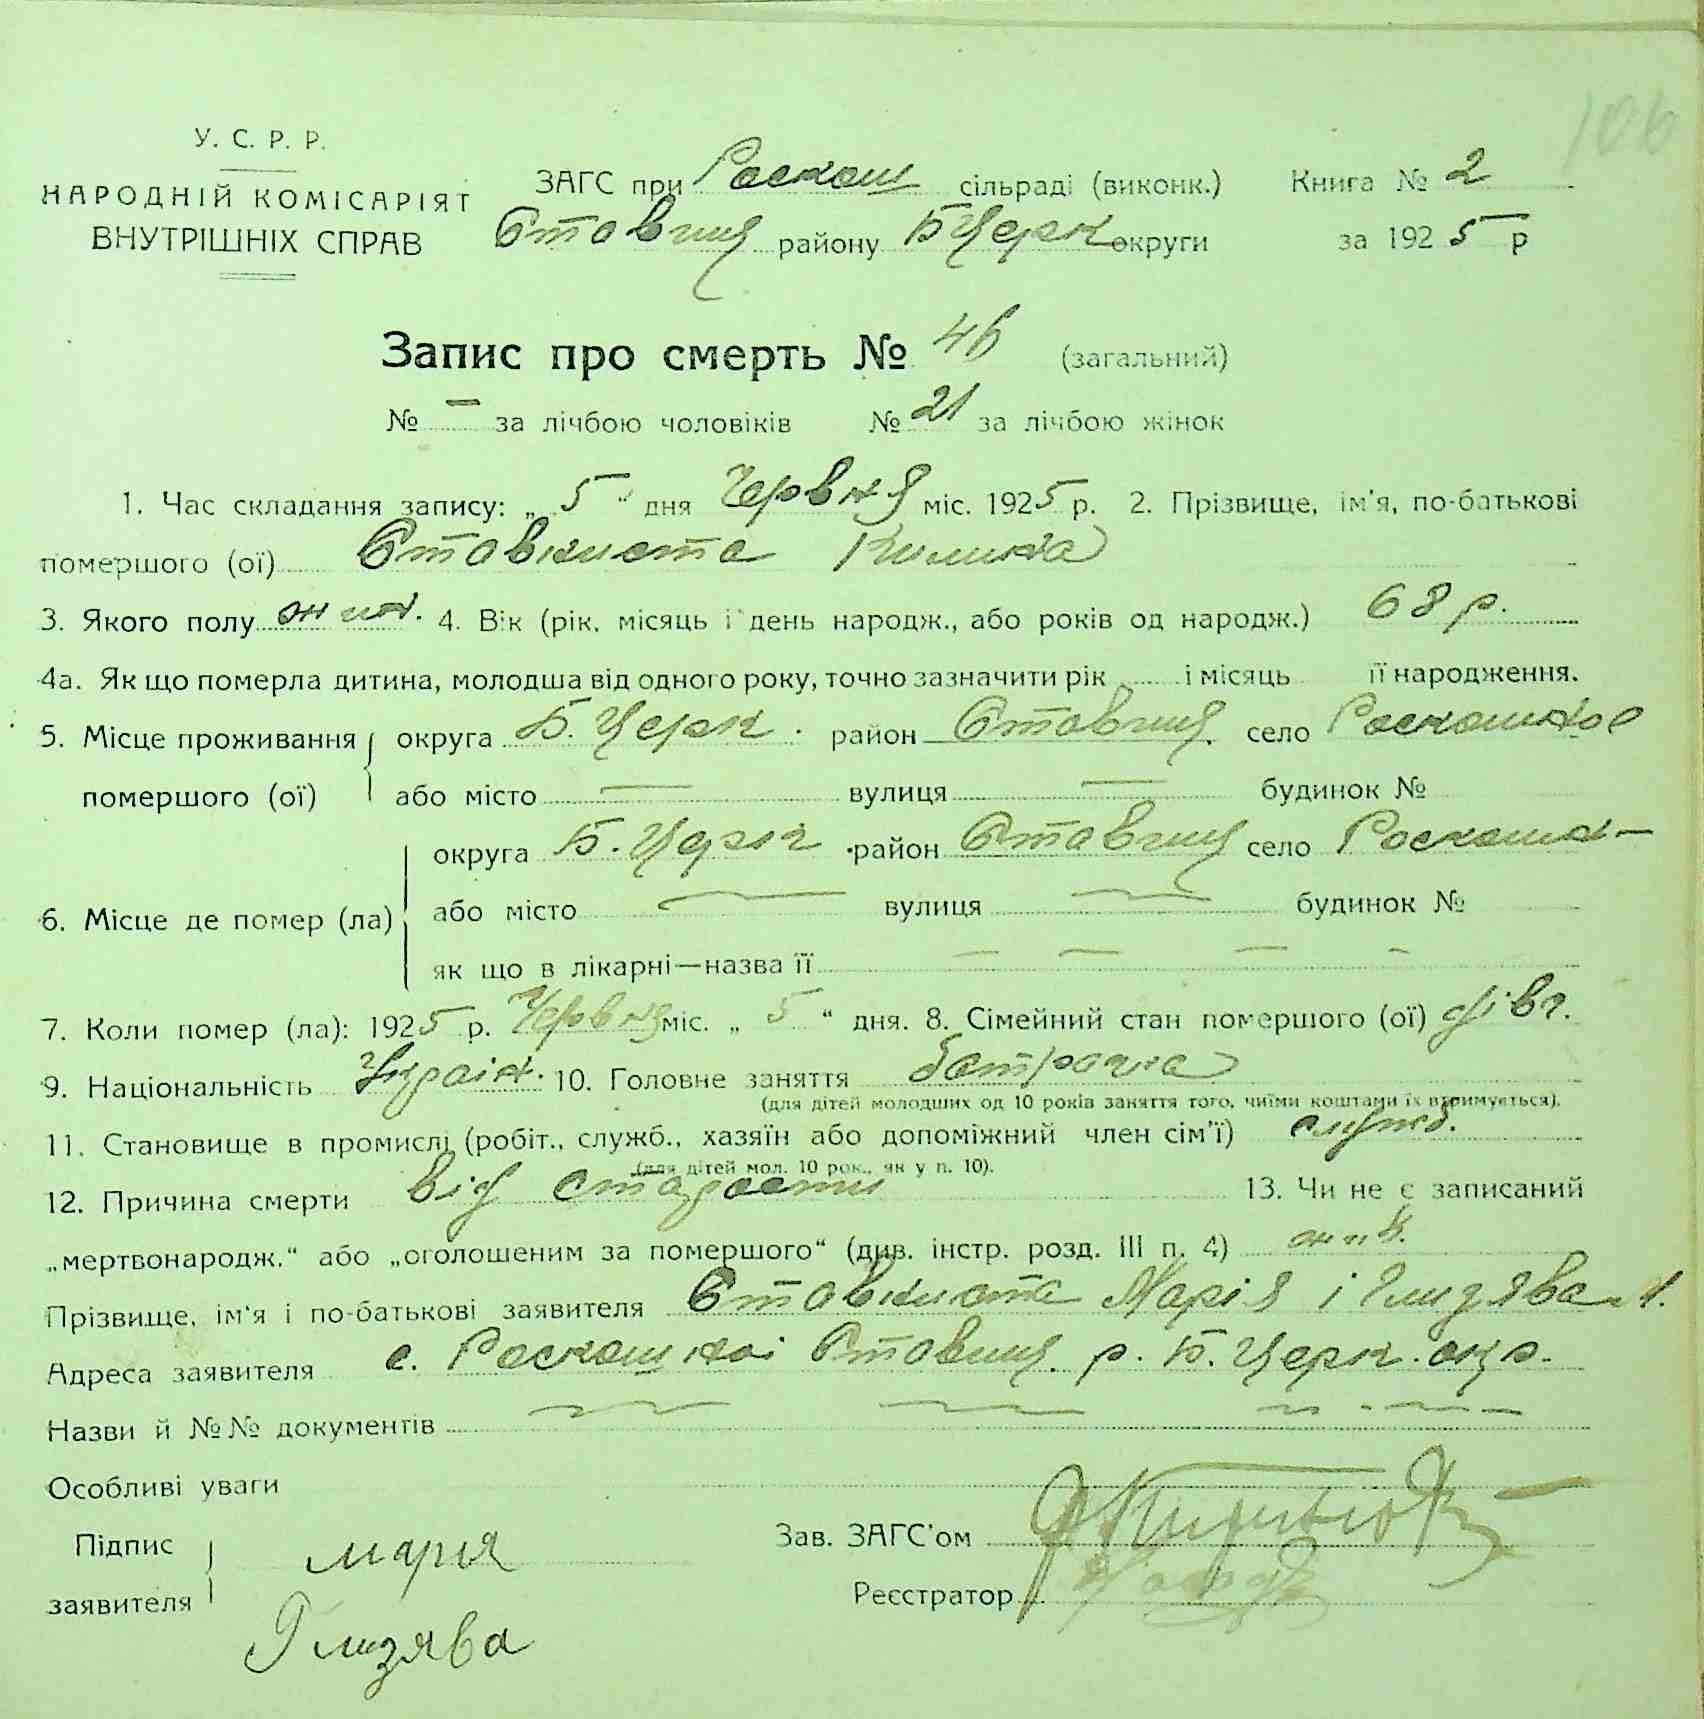 106
У. С. Р. Р.
НАРОДНІЙ КОМІСАРІЯТ
ВНУТРІШНІХ СПРАВ
ЗАГС при Роскош сільраді (виконк.) Книга № 2
Ставищ району Б Церк округи за 1925 р
Запис про смерть № 46 (загальний)
№ — за лічбою чоловіків № 21 за лічбою жінок
1. Час складання запису: „ 5 " дня Червня міс. 1925 р. 2. Прізвище, ім'я, по-батькові
помершого (ої) Ставниста Килина
3. Якого полу жин. 4. Вік (рік, місяць і день народж., або років од народж.) 68 р.
4а. Як що померла дитина, молодша від одного року, точно зазначити рік і місяць її народження.
5. Місце проживання округа Б. Церк. район Ставищ. село
помершого (ої) або місто — вулиця — будинок №
округа Б. Церк район Ставищ село
6. Місце де помер (ла) або місто — вулиця — будинок №
як що в лікарні—назва її — — — -
7. Коли помер (ла): 1925 р. Червня міс. „ 5 " дня. 8. Сімейний стан помершого (ої) дівч.
9. Національність Україн. 10. Головне заняття батрачка
(для дітей молодших од 10 років заняття того, чиїми коштами їх втримується).
11. Становище в промислі (робіт., служб., хазяїн або допоміжний член сім'ї) служб.
(для дітей мол. 10 рок., як у п. 10).
12. Причина смерти від старости 13. Чи не є записаний
„мертвонародж." або „оголошеним за помершого" (див. інстр. розд. III п. 4)
Прізвище, ім'я і по-батькові заявителя Ставниста Марія і Глизява
Адреса заявителя с. Роскошної Ставищ. р. Б. Церк. окр.
Назви й №№ документів
Особливі уваги
Підпис
заявителя
марія
Глизява
Зав. ЗАГС'ом
Реєстратор